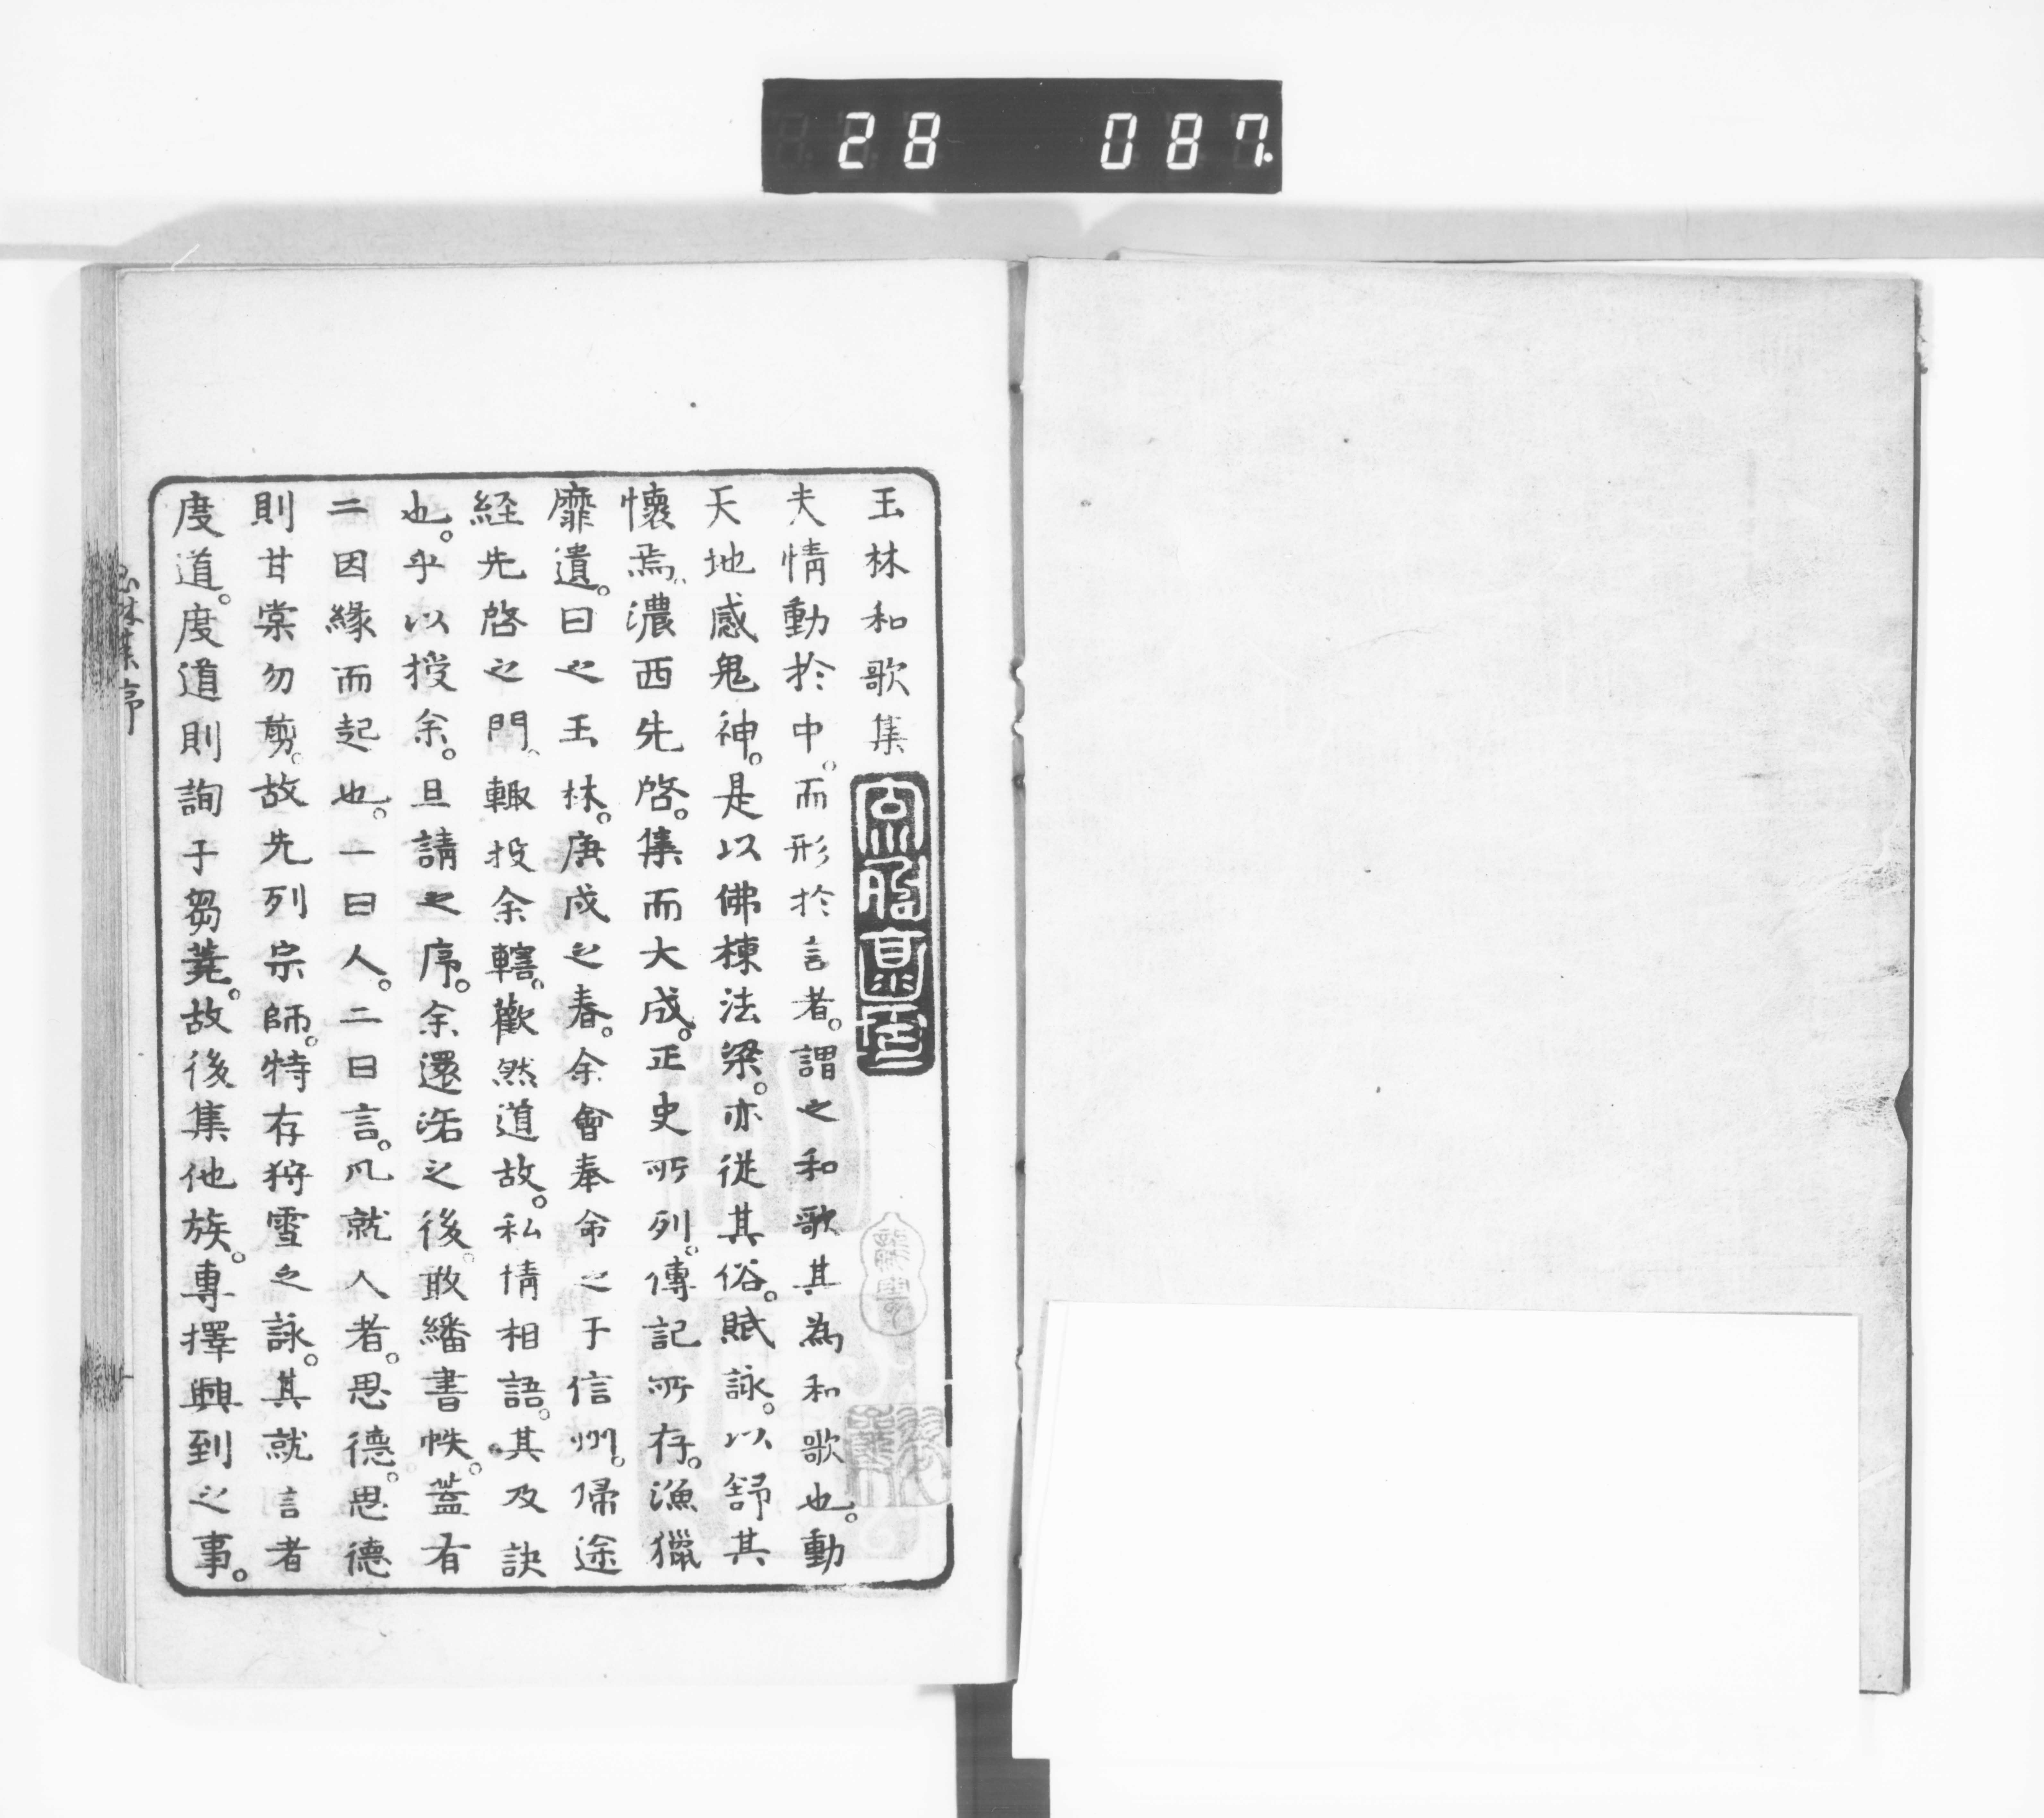 28 087
玉林和歌集
夫情動於中。而形於言者。謂之和歌其為和歌也。動
天地感鬼神。是以佛棟法梁。亦従其俗。賦詠。以舒其
懷焉。濃西先啓。集而大成。正史所列。傳記所存。漁獵
靡遺。曰之玉林。庚戌之春。余會奉命之于信州。帰途
経先啓之門。輙投余轄。歡然道故。私情相語。其及訣
也。乎以授余。且請之序。余還洺之後。敢繙書帙。蓋有
二因緣而起也。一曰人。二曰言。凡就人者。思德。思德
則甘棠勿剪。故先列宗師。特存狩雪之詠。其就言者
度道。度道則詢于芻蕘。故後集他族。專擇興到之事。
林集序